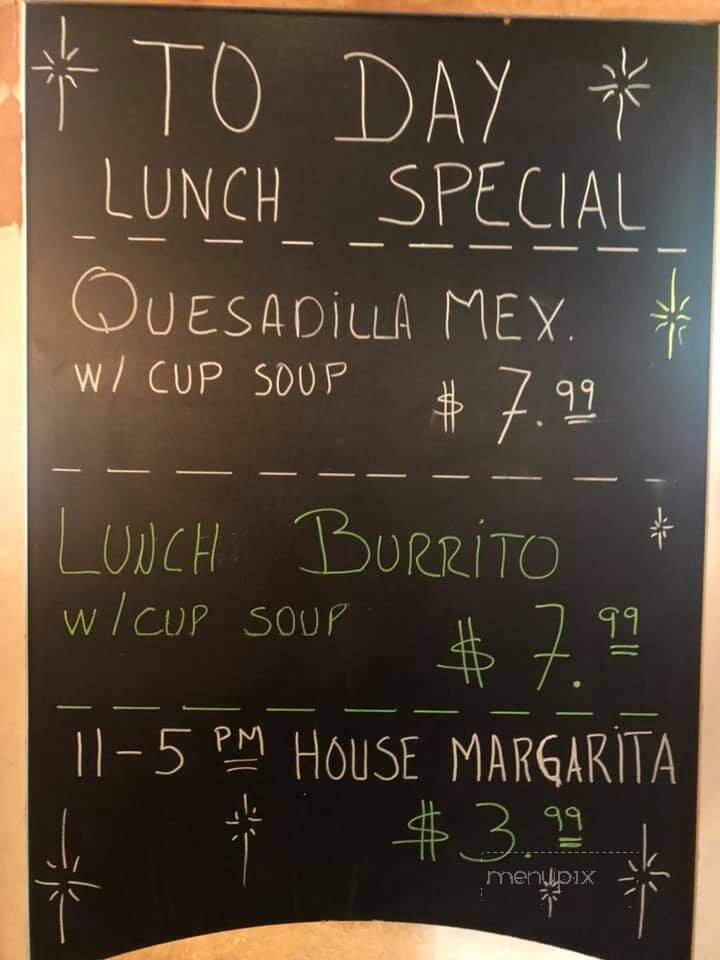 TO DAY
LUNCH SPECIAL
QUESADiLLA MEX.
W/ CUP SOUP
$ 7.99
LUNCH BURRiTO
W/CUP SOUP
$ 7.99
11-5 PM HOUSE MARGARiTA
$ 3.99
menupix